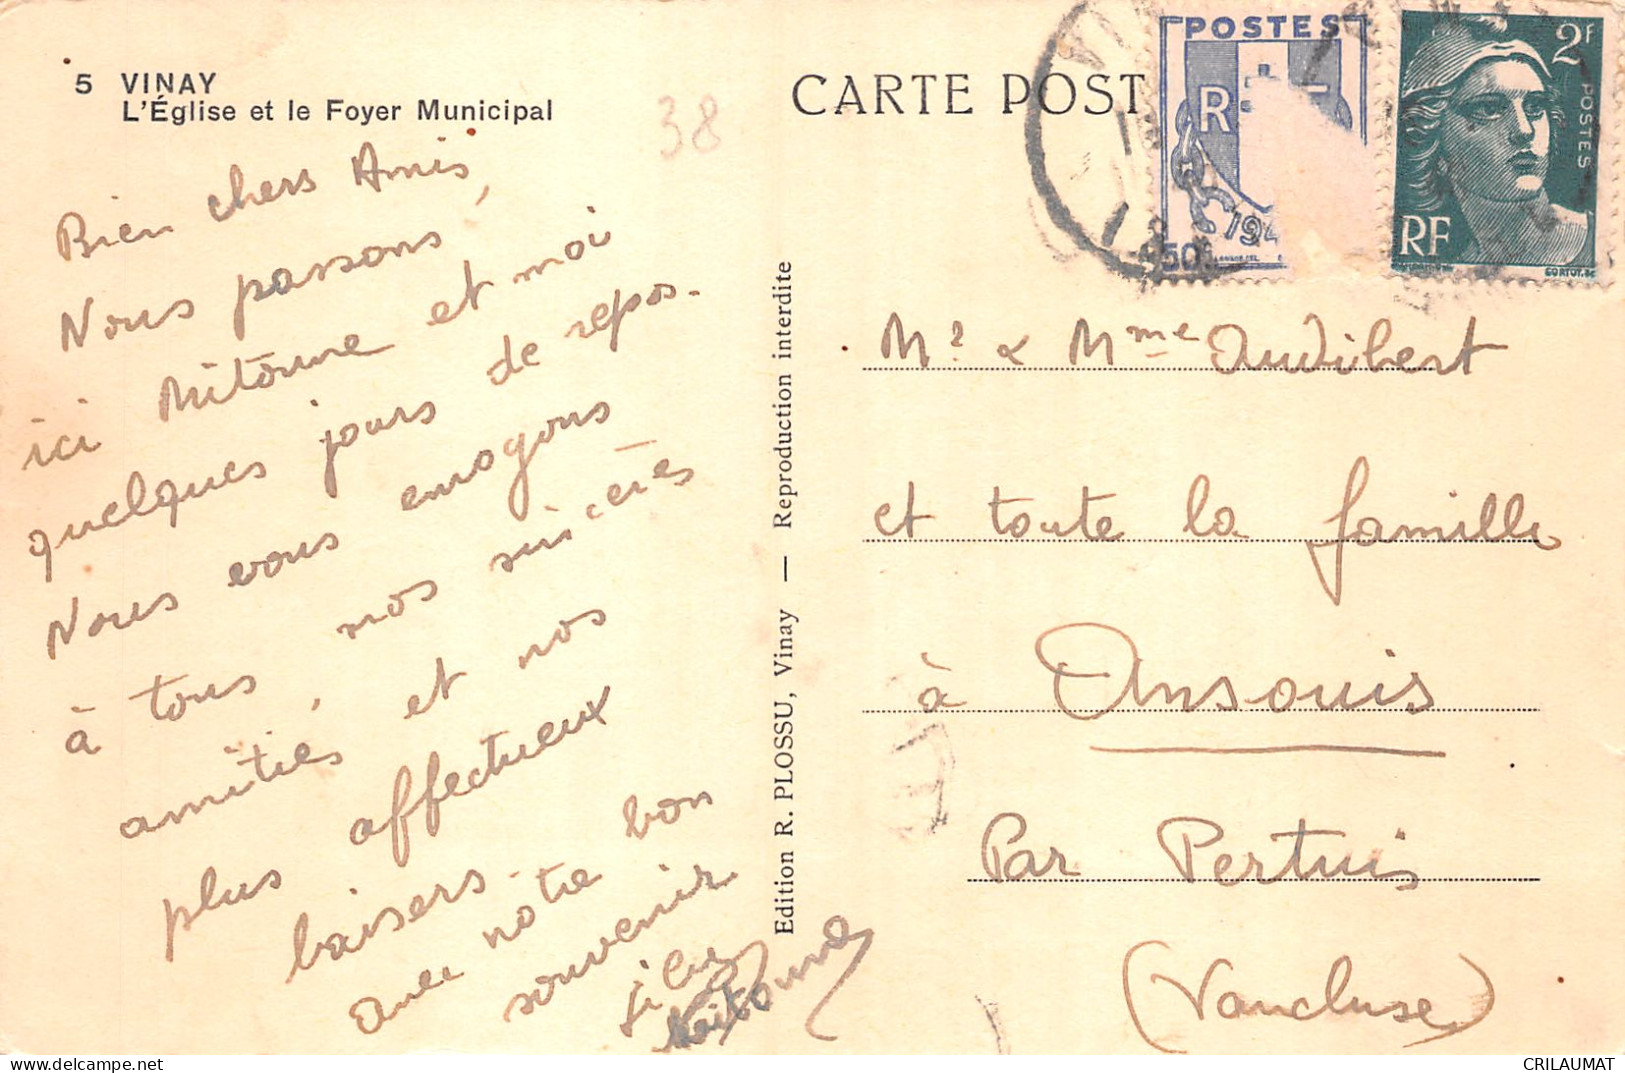 5 VINAY
L'Église et le Foyer Municipal
38
CARTE POST
POSTES
R F
194
50
2F
POSTES
RF
GORTOT.SC
Bien chers Amis,
Nous passons,
ici Mitoune et moi
quelques jours de repos.
Nous vous envoyons
à tous, nos sincères
amitiés et nos
plus affectueux
baisers.
Avec notre bon
souvenir
Edition R. PLOSSU, Vinay — Reproduction interdite
Mr & Mme Audibert
et toute la famille
à Ansouis
Par Pertuis
(Vaucluse)
CRILAUMAT